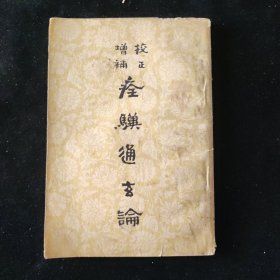 校正
增補
痊驥通玄論